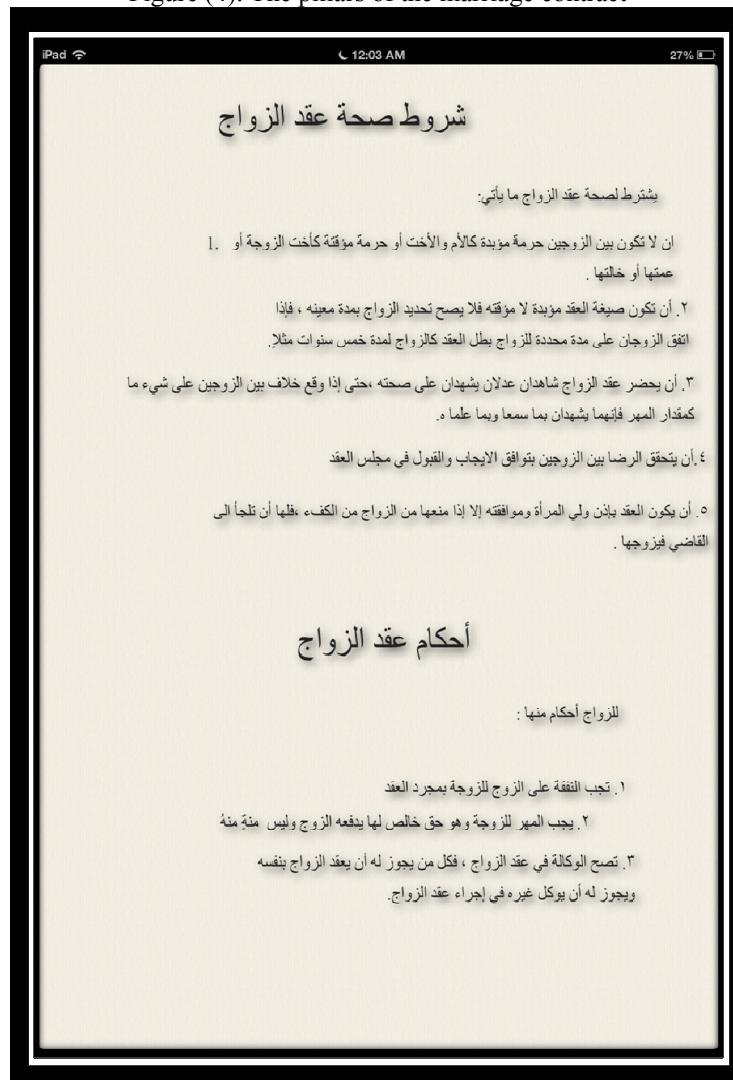 Figure (4). The pillars of the marriage contract
iPad 12:03 AM 27%
شروط صحة عقد الزواج
يشترط لصحة عقد الزواج ما يأتي:
1. ان لا تكون بين الزوجين حرمة مؤبدة كالأم والأخت أو حرمة مؤقتة كأخت الزوجة أو
عمتها أو خالتها .
٢. أن تكون صيغة العقد مؤبدة لا مؤقته فلا يصح تحديد الزواج بمدة معينه ، فإذا
اتفق الزوجان على مدة محددة للزواج بطل العقد كالزواج لمدة خمس سنوات مثلاِ.
٣. أن يحضر عقد الزواج شاهدان عدلان يشهدان على صحته ،حتى إذا وقع خلاف بين الزوجين على شيء ما
كمقدار المهر فإنهما يشهدان بما سمعا وبما علما ه.
٤.أن يتحقق الرضا بين الزوجين بتوافق الايجاب والقبول في مجلس العقد
٥. أن يكون العقد بإذن ولي المرأة وموافقته إلا إذا منعها من الزواج من الكفء ،فلها أن تلجأ الى
القاضي فيزوجها .
أحكام عقد الزواج
للزواج أحكام منها :
١. تجب النفقة على الزوج للزوجة بمجرد العقد
٢. يجب المهر للزوجة وهو حق خالص لها يدفعه الزوج وليس منةٍ منهُ
٣. تصح الوكالة في عقد الزواج ، فكل من يجوز له أن يعقد الزواج بنفسه
ويجوز له أن يوكل غيره في إجراء عقد الزواج.